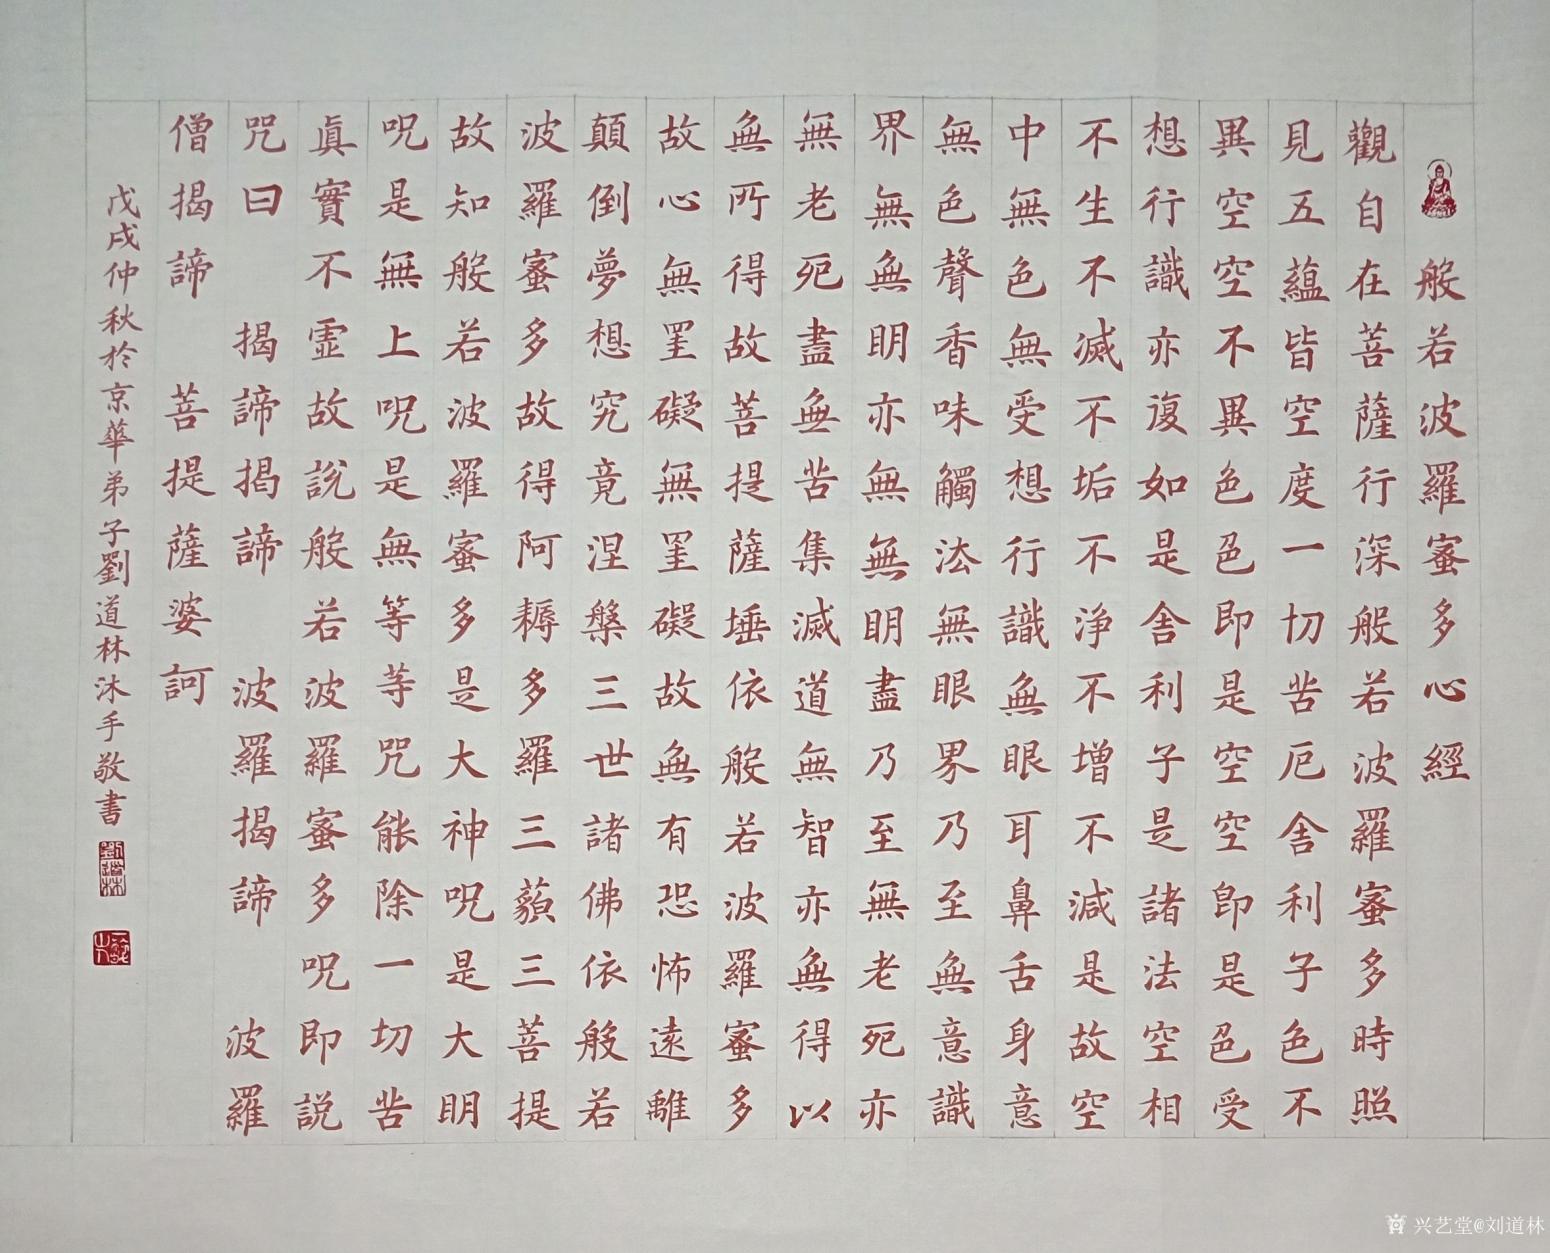 般若波羅蜜多心經
觀自在菩薩行深般若波羅蜜多時照
見五蘊皆空度一切苦厄舍利子色不
異空空不異色色即是空空即是色受
想行識亦復如是舍利子是諸法空相
不生不滅不垢不淨不增不減是故空
中無色無受想行識無眼耳鼻舌身意
無色聲香味觸法無眼界乃至無意識
界無無明亦無無明盡乃至無老死亦
無老死盡無苦集滅道無智亦無得以
無所得故菩提薩埵依般若波羅蜜多
故心無罣礙無罣礙故無有恐怖遠離
顛倒夢想究竟涅槃三世諸佛依般若
波羅蜜多故得阿耨多羅三藐三菩提
故知般若波羅蜜多是大神呪是大明
呪是無上呪是無等等咒能除一切苦
真實不虛故說般若波羅蜜多呪即說
咒曰 揭諦揭諦 波羅揭諦 波羅
僧揭諦 菩提薩婆訶
戊戌仲秋於京華弟子劉道林沐手敬書
劉道林
兴艺堂@刘道林